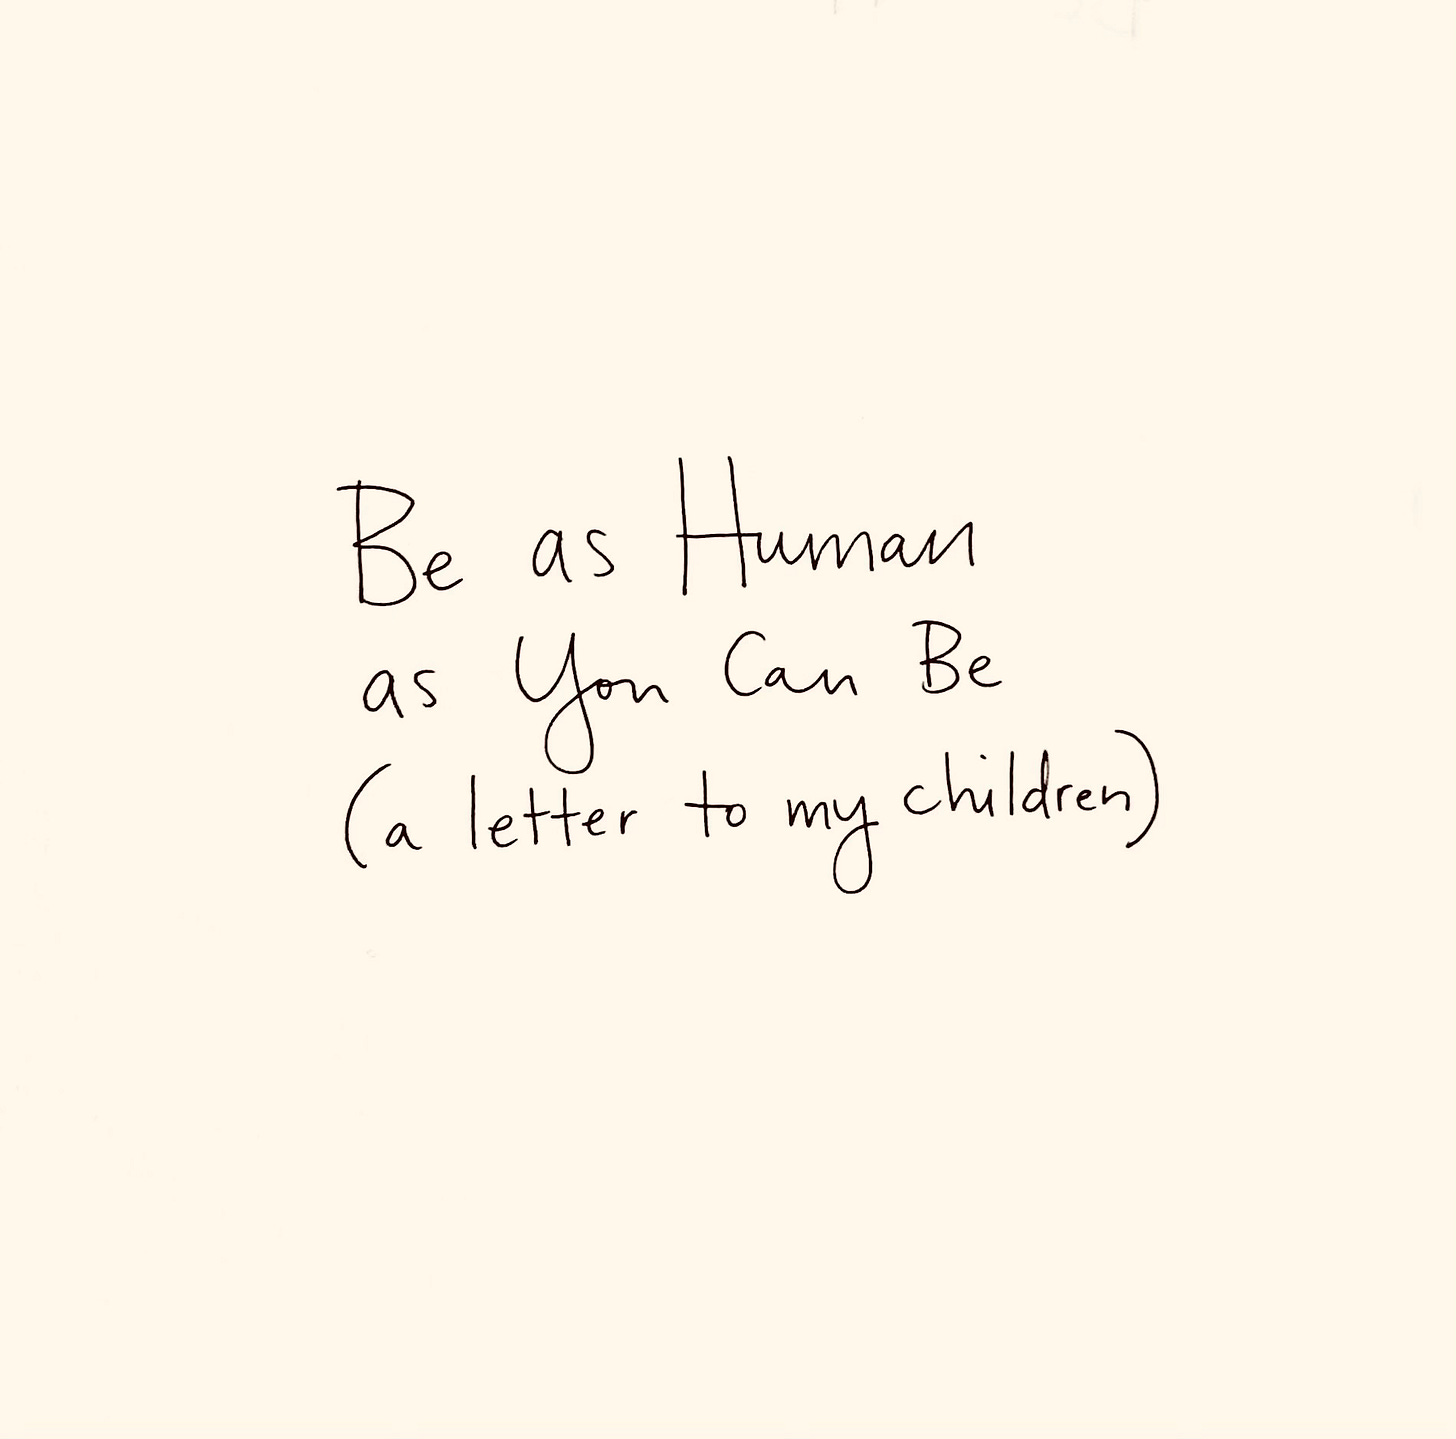 Be as Human
as You Can Be
(a letter to my children)